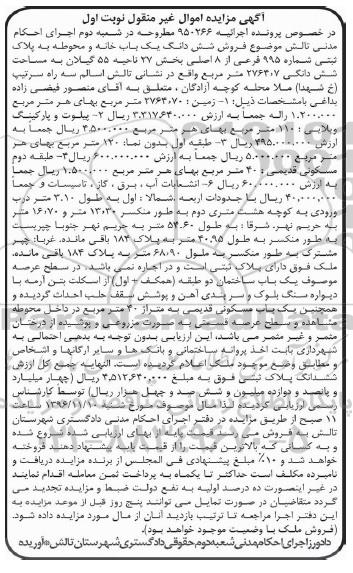 آگهی مزایده اموال غیر منقول نوبت اول
در خصوص پرونده اجرائیه ۹۵۰۲۶۶ مطروحه در شعبه دوم اجرای احکام
مدنی تالش موضوع فروش شش دانگ یک باب خانه و محوطه به پلاک
ثبتی شماره ۹۹۵ فرعی از ۸ اصلی بخش ۲۷ ناحیه ۵۵ گیلان به مساحت
شش دانگی ۲۷۶۴۰۷ متر مربع واقع در نشانی تالش اسالم سه راه سرتیپ
(خ شهدا) ملا محله کوچه آزادگان ، متعلق به آقای منصور فیضی زاده
بداغی بامشخصات ذیل: ۱- زمین : ۲۷۶۴۰۷۰ متر مربع بهای هر متر مربع
۱.۲۰۰.۰۰۰ راله جمعا به ارزش ۳.۳۱۷.۶۴۰.۰۰۰ ریال ۲- پیلوت و پارکینگ
ویلایی : ۱۱۰ متر مربع بهای هر متر مربع ۴.۵۰۰.۰۰۰ ریال جمعا به
ارزش ۴۹۵.۰۰۰.۰۰۰ ریال ۳- طبقه اول بدون نما: ۱۲۰ متر مربع بهای هر
متر مربع ۵.۰۰۰.۰۰۰ ریال جمعا به ارزش ۶۰۰.۰۰۰.۰۰۰ ریال ۴- طبقه دوم
مسکونی قدیمی : ۴۰ متر مربع بهای هر متر مربع ۱.۵۰۰.۰۰۰ ریال جمعا
به ارزش ۶۰.۰۰۰.۰۰۰ ریال ۶- انشعابات آب ، برق ، گاز ، تاسیسات و جمعاً
۴۰.۰۰۰.۰۰۰ ریال با حدودات اربعه :شمالا : اول به طول ۳.۱۰ متر درب
ورودی به کوچه هشت متری دوم به طور منکسر ۱۳.۳۰ متر و ۱۶.۷۰ متر
به حریم نهر. شرقا : به طول ۵۴.۶۰ متر به حریم نهر جنوبا چپریست
به طور منکسر به طول ۴۰.۹۵ متر به پلاک ۱۸۴ باقی مانده. غربا: چپر
مشترک به طور منکسر به طول ۶۸.۰۹۰ متر به پلاک ۱۸۴ باقی مانده.
ملک فوق دارای پلاک ثبتی است و در اجاره نمی باشد. در سطح عرصه
موصوف یک باب ساختمان دو طبقه (همکف + اول) از اسکلت بتن آرمه با
دیواره سنگ بلوک و سربندی آهن و پوشش سقف حلب احداث گردیده و
همچنین یک باب مسکونی قدیمی به متراژ ۴۰ متر مربع در داخل محوطه
مشاهده و سطح عرصه مبنی به صورت مزروعی و پوشیده از درختان
مثمر و غیر مثمر می باشد، این ارزیابی بدون توجه به بدهی احتمالی به
شهرداری بابت اخذ پروانه ساختمانی و بانک ها و سایر ارگانها و اشخاص
و مطابق وضع موجود ملک اعلام گردیده است. النهایه جمع کل ارزش
ششدانگ پلاک ثبتی فوق به مبلغ ۴.۵۱۲.۶۴۰.۰۰۰ ریال (چهار میلیارد
و پانصد و دوازده میلیون و شش صد و چهل هزار ریال) توسط کارشناس
رسمی ارزیابی گردیده لذا مال موصوف مورخ شنبه ۱۳۹۶/۱۱/۱۰ ساعت
۱۱ صبح از طریق مزایده در دفتر اجرای احکام مدنی دادگستری شهرستان
تالش به فروش می رسد، قیمت پایه از بهای ارزیابی شده شروع شده
و به کسانی که بالاترین قیمت را از قیمت پایه پیشنهاد دهند فروخته
خواهد شد و ۱۰٪ مبلغ پیشنهادی فی المجلس از برنده مزایده دریافت و
نامبرده مکلف است حداکثر تا یکماه به پرداخت ثمن معامله اقدام نمایند
در غیر اینصورت ده درصد اولیه به نفع دولت ضبط و مزایده تجدید می
گردد متقاضیان در صورت تمایل می توانند پنج روز قبل از موعد مزایده به
این دفتر اجرا مراجعه تا ترتیب بازدید آنان از مال مورد مزایده داده شود.
(فروش ملک با وضعیت موجود خواهد بود).
دادورز اجرای احکام مدنی شعبه دوم حقوقی دادگستری شهرستان تالش – آوریده